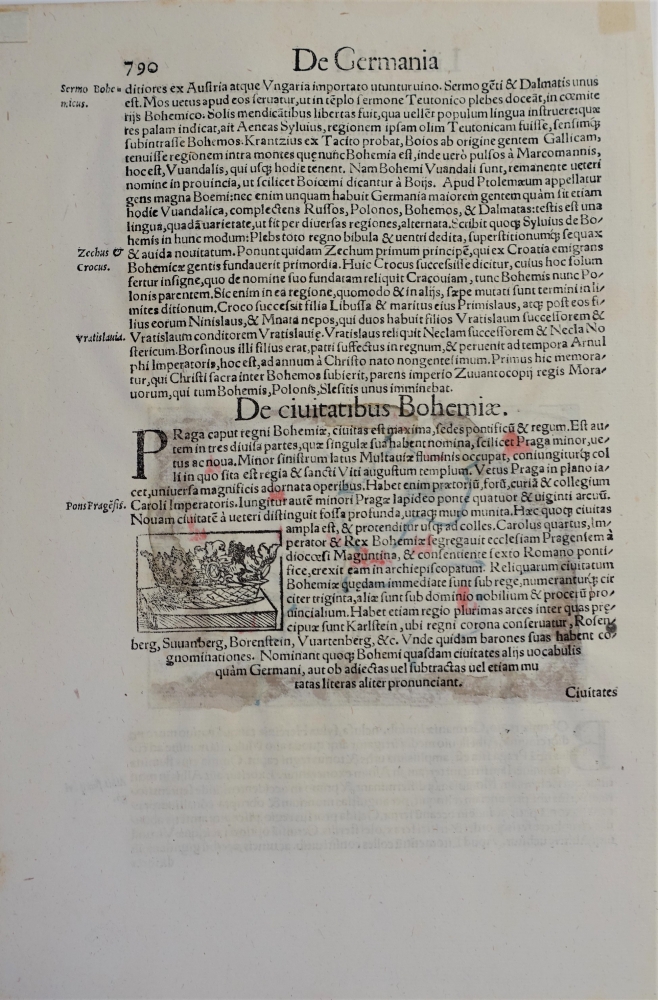 790
De Germania
Sermo Bohe=
micus.
ditiores ex Austria atque Vngaria importato utuntur uino. Sermo gẽti & Dalmatis unus
est. Mos uetus apud eos seruatur, ut in tẽplo sermone Teutonico plebes doceãt, in cœmite
rijs Bohemico. Solis mendicãtibus libertas fuit, qua uellẽt populum lingua instruere: quæ
res palam indicat, ait Aeneas Syluius, regionem ipsam olim Teutonicam fuisse, sensimq;
subintrasse Bohemos. Krantzius ex Tacito probat, Boios ab origine gentem Gallicam,
tenuisse regionem intra montes quę nunc Bohemia est, inde uerò pulsos à Marcomannis,
hoc est, Vuandalis, qui usq; hodie tenent. Nam Bohemi Vuandali sunt, remanente ueteri
nomine in prouincia, ut scilicet Boiœmi dicantur à Boijs. Apud Ptolemæum appellatur
gens magna Boemi: nec enim unquam habuit Germania maiorem gentem quàm sit etiam
hodie Vuandalica, complectens Russos, Polonos, Bohemos, & Dalmatas: testis est una
lingua, quadã uarietate, ut fit per diuersas regiones, alternata. Scribit quoq; Syluius de Bo/
hemis in hunc modum: Plebs toto regno bibula & uentri dedita, superstitionumq; sequax
Zechus &
Crocus.
& auida nouitatum. Ponunt quidam Zechum primum principẽ, qui ex Croatia emigrans
Bohemicæ gentis fundauerit primordia. Huic Crocus successisse dicitur, cuius hoc solum
fertur insigne, quo de nomine suo fundatam reliquit Cracouiam, tunc Bohemis nunc Po/
lonis parentem. Sic enim in ea regione, quomodo & in alijs, sæpe mutati sunt termini in li/
mites ditionum. Croco successit filia Libussa & maritus eius Primislaus, atq; post eos fi/
lius eorum Ninislaus, & Mnata nepos, qui duos habuit filios Vratislaum successorem &
Vratislauia.
Vratislaum conditorem Vratislauię. Vratislaus reliquit Neclam successorem & Necla No
stericum. Borsinous illi filius erat, patri suffectus in regnum, & peruenit ad tempora Arnul
phi Imperatoris, hoc est, ad annum à Christo nato nongentesimum. Primus hic memora/
tur, qui Christi sacra inter Bohemos subierit, parens imperio Zuuantocopij regis Mora/
uorum, qui tum Bohemis, Polonis, Slesitis unus imminebat.
De ciuitatibus Bohemiæ.
PRaga caput regni Bohemiæ, ciuitas est maxima, sedes pontificũ & regum. Est au/
tem in tres diuisa partes, quæ singulæ sua habent nomina, scilicet Praga minor, ue/
tus ac noua. Minor sinistrum latus Multauiæ fluminis occupat, coniungiturq; col
li in quo sita est regia & sancti Viti augustum templum. Vetus Praga in plano ia/
cet, uniuersa magnificis adornata operibus. Habet enim prætoriũ, forũ, curiã & collegium
Pons Pragẽsis.
Caroli Imperatoris. Iungitur autẽ minori Pragæ lapideo ponte quatuor & uiginti arcuũ.
Nouam ciuitatẽ à ueteri distinguit fossa profunda, utraq; muro munita. Hæc quoq; ciuitas
ampla est, & protenditur usq; ad colles. Carolus quartus, Im/
perator & Rex Bohemiæ segregauit ecclesiam Pragensem à
diocœsi Maguntina, & consentiente sexto Romano ponti/
fice, erexit eam in archiepiscopatum. Reliquarum ciuitatum
Bohemiæ quędam immediate sunt sub rege, numeranturq; cir
citer triginta, aliæ sunt sub dominio nobilium & procerũ pro/
uincialium. Habet etiam regio plurimas arces inter quas prę/
cipuæ sunt Karlstein, ubi regni corona conseruatur, Rosen/
berg, Suuanberg, Borenstein, Vuartenberg, &c. Vnde quidam barones suas habent co/
gnominationes. Nominant quoq; Bohemi quasdam ciuitates alijs uocabulis
quàm Germani, aut ob adiectas uel subtractas uel etiam mu
tatas literas aliter pronunciant.
Ciuitates